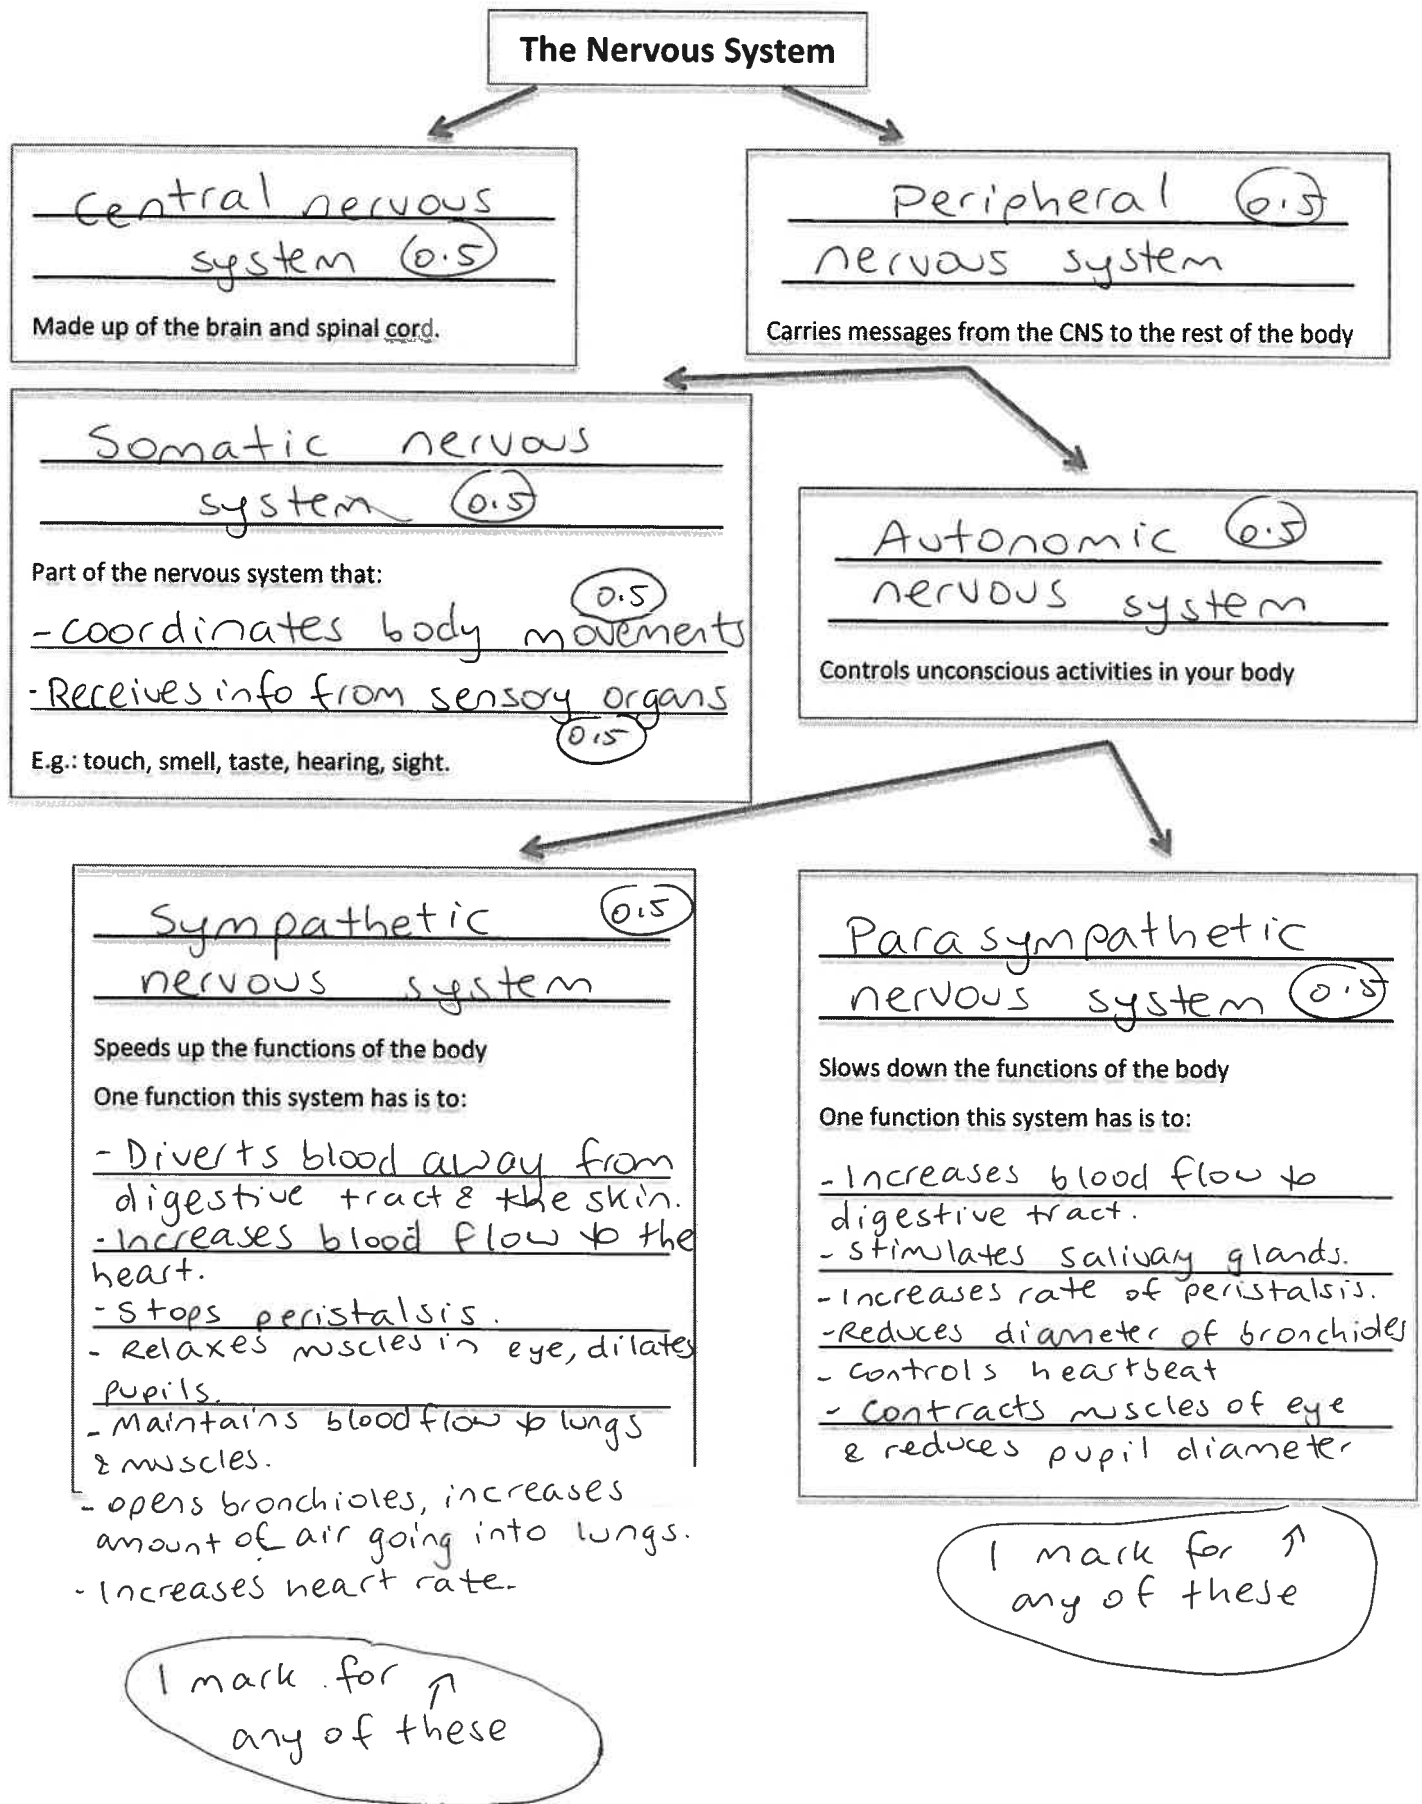 The Nervous System
Central nervous
system 0.5
Made up of the brain and spinal cord.
Peripheral 0.5
nervous system
Carries messages from the CNS to the rest of the body
Somatic nervous
system 0.5
Part of the nervous system that:
0.5
- Coordinates body movements
- Receives info from sensory organs
0.5
E.g.: touch, smell, taste, hearing, sight.
Autonomic 0.5
nervous system
Controls unconscious activities in your body
Sympathetic 0.5
nervous system
Speeds up the functions of the body
One function this system has is to:
- Diverts blood away from
digestive tract & the skin.
- Increases blood flow to the
heart.
- Stops peristalsis.
- Relaxes muscles in eye, dilates
pupils.
- Maintains blood flow to lungs
& muscles.
- opens bronchioles, increases
amount of air going into lungs.
- Increases heart rate.
1 mark for ↑
any of these
Parasympathetic
nervous system 0.5
Slows down the functions of the body
One function this system has is to:
- Increases blood flow to
digestive tract.
- stimulates salivary glands.
- Increases rate of peristalsis.
- Reduces diameter of bronchioles
- controls heartbeat
- contracts muscles of eye
& reduces pupil diameter
1 mark for ↑
any of these